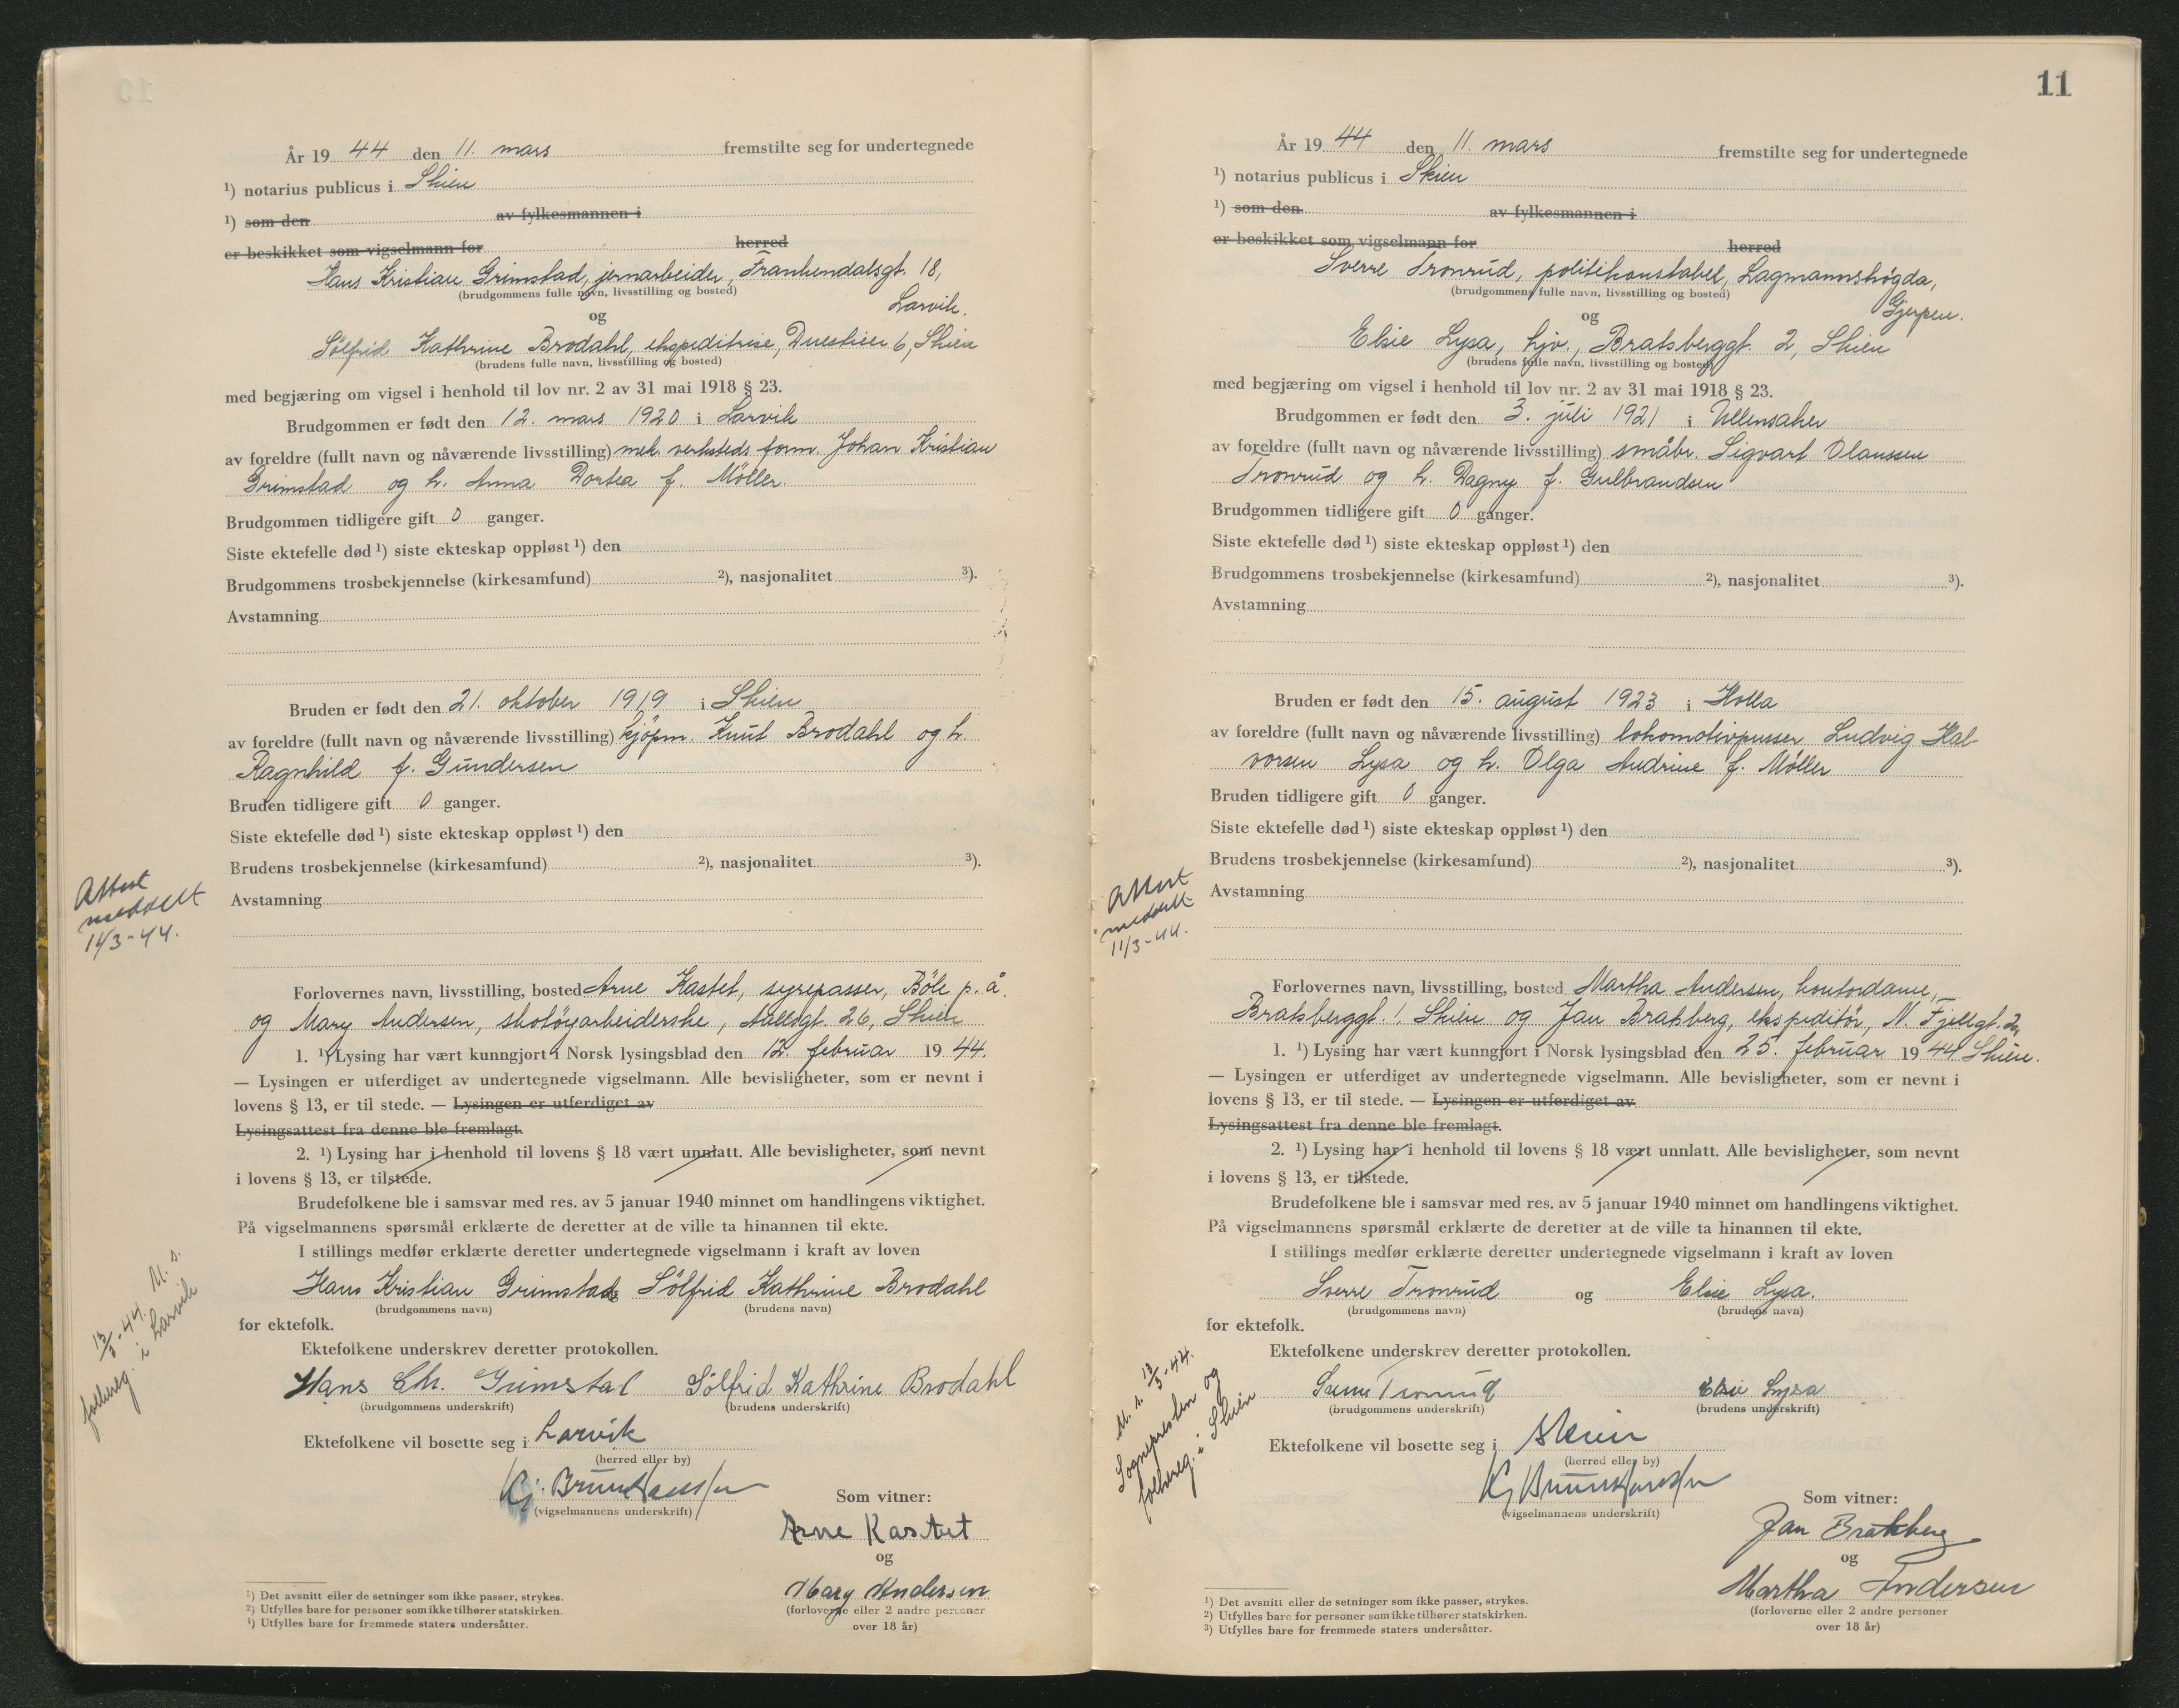 År 19 44 den 11. mars fremstilte seg for undertegnede
¹) notarius publicus i Skien
¹) som den av fylkesmannen i
er beskikket som vigselmann for herred
Hans Kristian Grimstad, jernarbeider, Frankendalsgt. 18,
(brudgommens fulle navn, livsstilling og bosted)
Larvik.
og
Sölfrid Kathrine Brodahl, ekspeditrise, Duestien 6, Skien
(brudens fulle navn, livsstilling og bosted)
med begjæring om vigsel i henhold til lov nr. 2 av 31 mai 1918 § 23.
Brudgommen er født den 12. mars 1920 i Larvik
av foreldre (fullt navn og nåværende livsstilling) mek. verksteds form. Johan Kristian
Grimstad og h. Anna Dortea f. Möller.
Brudgommen tidligere gift 0 ganger.
Siste ektefelle død ¹) siste ekteskap oppløst ¹) den
Brudgommens trosbekjennelse (kirkesamfund) ²), nasjonalitet ³).
Avstamning
Bruden er født den 21. oktober 1919 i Skien
av foreldre (fullt navn og nåværende livsstilling) kjöpm. Knut Brodahl og h.
Ragnhild f. Gundersen
Bruden tidligere gift 0 ganger.
Siste ektefelle død ¹) siste ekteskap oppløst ¹) den
Brudens trosbekjennelse (kirkesamfund) ²), nasjonalitet ³).
Avstamning
Attest
meddelt
11/3-44.
Forlovernes navn, livsstilling, bosted Arne Kastet, syrepasser, Böle p. å.
og Mary Andersen, skotöyarbeiderske, Aallsgt. 26, Skien
1. ¹) Lysing har vært kunngjort i Norsk lysingsblad den 12. februar 19 44.
— Lysingen er utferdiget av undertegnede vigselmann. Alle bevisligheter, som er nevnt i
lovens § 13, er til stede. — Lysingen er utferdiget av
Lysingsattest fra denne ble fremlagt.
2. ¹) Lysing har i henhold til lovens § 18 vært unnlatt. Alle bevisligheter, som nevnt
i lovens § 13, er tilstede.
Brudefolkene ble i samsvar med res. av 5 januar 1940 minnet om handlingens viktighet.
På vigselmannens spørsmål erklærte de deretter at de ville ta hinannen til ekte.
I stillings medfør erklærte deretter undertegnede vigselmann i kraft av loven
Hans Kristian Grimstad Sölfrid Kathrine Brodahl
(brudgommens navn) (brudens navn)
for ektefolk.
M. s.
13/3-44.
folkereg. i Larvik
Ektefolkene underskrev deretter protokollen.
Hans Chr. Grimstad Sölfrid Kathrine Brodahl
(brudgommens underskrift) (brudens underskrift)
Ektefolkene vil bosette seg i Larvik
(herred eller by)
(vigselmannens underskrift)
Som vitner:
Arne Kastet
og
Mary Andersen
(forloverne eller 2 andre personer
over 18 år)
¹) Det avsnitt eller de setninger som ikke passer, strykes.
²) Utfylles bare for personer som ikke tilhører statskirken.
³) Utfylles bare for fremmede staters undersåtter.
11
År 19 44 den 11. mars fremstilte seg for undertegnede
¹) notarius publicus i Skien
¹) som den av fylkesmannen i
er beskikket som vigselmann for herred
Sverre Tronrud, politikonstabel, Lagmannshøgda,
(brudgommens fulle navn, livsstilling og bosted)
Gjerpen.
og
Elsie Lysa, hjv., Bratsberggt. 2, Skien
(brudens fulle navn, livsstilling og bosted)
med begjæring om vigsel i henhold til lov nr. 2 av 31 mai 1918 § 23.
Brudgommen er født den 3. juli 1921 i Ullensaker
av foreldre (fullt navn og nåværende livsstilling) småbr. Sigvart Olaussen
Tronrud og h. Dagny f. Gulbrandsen
Brudgommen tidligere gift 0 ganger.
Siste ektefelle død ¹) siste ekteskap oppløst ¹) den
Brudgommens trosbekjennelse (kirkesamfund) ²), nasjonalitet ³).
Avstamning
Bruden er født den 15. august 1923 i Holla
av foreldre (fullt navn og nåværende livsstilling) lokomotivpusser Ludvig Hal-
vorsen Lysa og h. Olga Andrine f. Möller
Bruden tidligere gift 0 ganger.
Siste ektefelle død ¹) siste ekteskap oppløst ¹) den
Brudens trosbekjennelse (kirkesamfund) ²), nasjonalitet ³).
Avstamning
Attest
meddelt
11/3-44.
Forlovernes navn, livsstilling, bosted Martha Andersen, kontordame,
Bratsberggt. 1. Skien og Jan Bratsberg, ekspeditör, N. Fjellgt. 2,
1. ¹) Lysing har vært kunngjort i Norsk lysingsblad den 25. februar 19 44 Skien.
— Lysingen er utferdiget av undertegnede vigselmann. Alle bevisligheter, som er nevnt i
lovens § 13, er til stede. — Lysingen er utferdiget av
Lysingsattest fra denne ble fremlagt.
2. ¹) Lysing har i henhold til lovens § 18 vært unnlatt. Alle bevisligheter, som nevnt
i lovens § 13, er tilstede.
Brudefolkene ble i samsvar med res. av 5 januar 1940 minnet om handlingens viktighet.
På vigselmannens spørsmål erklærte de deretter at de ville ta hinannen til ekte.
I stillings medfør erklærte deretter undertegnede vigselmann i kraft av loven
Sverre Tronrud og Elsie Lysa.
(brudgommens navn) (brudens navn)
for ektefolk.
M. s. 13/3-44.
Sognepresten og
folkereg. i Skien
Ektefolkene underskrev deretter protokollen.
Sverre Tronrud Elsie Lysa
(brudgommens underskrift) (brudens underskrift)
Ektefolkene vil bosette seg i Skien
(herred eller by)
(vigselmannens underskrift)
Som vitner:
Jan Bratsberg
og
Martha Andersen
(forloverne eller 2 andre personer
over 18 år)
¹) Det avsnitt eller de setninger som ikke passer, strykes.
²) Utfylles bare for personer som ikke tilhører statskirken.
³) Utfylles bare for fremmede staters undersåtter.